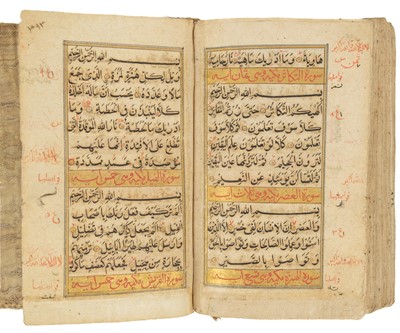 هاوية وما ادريك ماهيه نار حامية
سورة التكاثر مكية وهي ثمان آية
بسم الله الرحمن الرحيم
الهيكم التكاثر حتى زرتم المقابر
كلا سوف تعلمون ثم كلا سوف
تعلمون كلا لو تعلمون علم اليقين
لترون الجحيم ثم لترونها عين
اليقين ثم لتسئلن يومئذ عن النعيم
سورة العصر مكية وهي ثلاث آية
بسم الله الرحمن الرحيم
والعصر ان الانسان لفي خسر الا الذين
آمنوا وعملوا الصالحات وتواصوا بالحق
وتواصوا بالصبر
سورة الهمزة مكية وهي تسع آية
بسم الله الرحمن الرحيم
ويل لكل همزة لمزة الذي جمع
مالا وعدده يحسب ان ماله اخلده
كلا لينبذن في الحطمة وما
ادريك ما الحطمة نار الله الموقدة التي
تطلع على الافئدة انها عليهم
مؤصدة في عمد ممددة
سورة الفيل مكية وهي خمس آية
بسم الله الرحمن الرحيم
الم تر كيف فعل ربك باصحاب
الفيل الم يجعل كيدهم في تضليل
وارسل عليهم طيرا ابابيل ترميهم
بحجارة من سجيل فجعلهم كعصف ماكول
سورة القريش مكية وهي آية